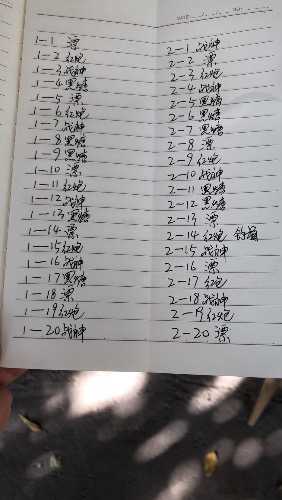 1-1 漂
1-2 红炮
1-3 战神
1-4 黑糖
1-5 漂
1-6 红炮
1-7 战神
1-8 黑糖
1-9 黑糖
1-10 漂
1-11 红炮
1-12 战神
1-13 黑糖
1-14 漂
1-15 红炮
1-16 战神
1-17 黑糖
1-18 漂
1-19 红炮
1-20 战神
2-1 战神
2-2 漂
2-3 红炮
2-4 战神
2-5 黑糖
2-6 黑糖
2-7 黑糖
2-8 漂
2-9 红炮
2-10 战神
2-11 黑糖
2-12 黑糖
2-13 漂
2-14 红炮
2-15 战神
2-16 漂
2-17 红炮
2-18 战神
2-19 红炮
2-20 漂